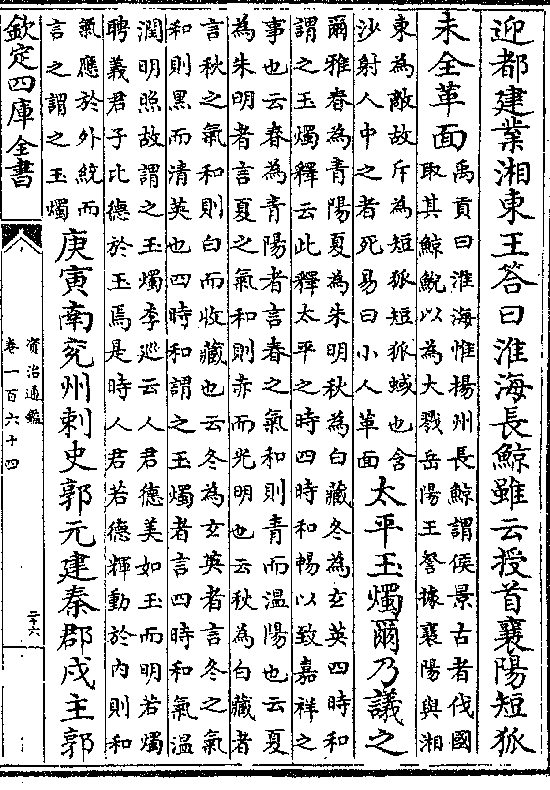 迎都建業湘東王答曰淮海長鯨雖云授首襄陽短狐
未全革面
禹貢曰淮海惟揚州長鯨謂侯景古者伐國
取其鯨鯢以為大戮岳陽王詧據襄陽與湘
東為敵故斥為短狐短狐蜮也含
沙射人中之者死易曰小人革面
太平玉燭爾乃議之
爾雅春為青陽夏為朱明秋為白藏冬為玄英四時和
謂之玉燭釋云此釋太平之時四時和暢以致嘉祥之
事也云春為青陽者言春之氣和則青而温陽也云夏
為朱明者言夏之氣和則赤而光明也云秋為白藏者
言秋之氣和則白而收藏也云冬為玄英者言冬之氣
和則黑而清英也四時和謂之玉燭者言四時和氣温
潤明照故謂之玉燭李巡云人君德美如玉而明若燭
聘義君子比德於玉焉是時人君若德輝動於内則和
氣應於外統而
言之謂之玉燭
庚寅南兖州刺史郭元建秦郡戍主郭
欽定四庫全書
資治通鑑
卷一百六十四
二十六